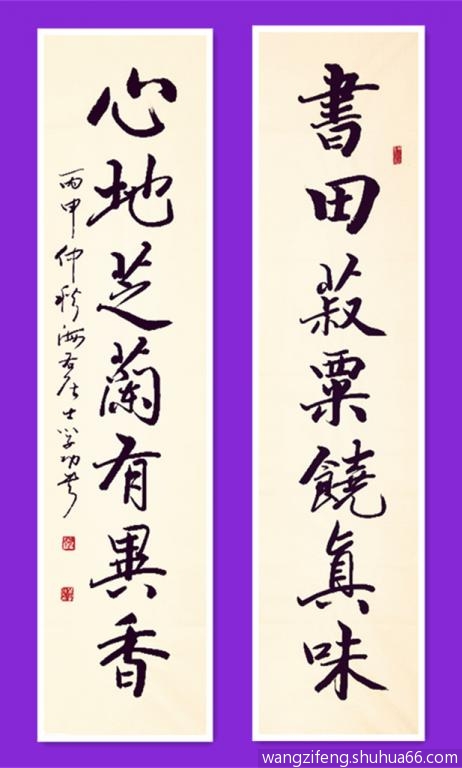 書田菽粟饒真味
心地芝蘭有異香
丙申仲秋海右居士学功书
wangzifeng.shuhua66.com